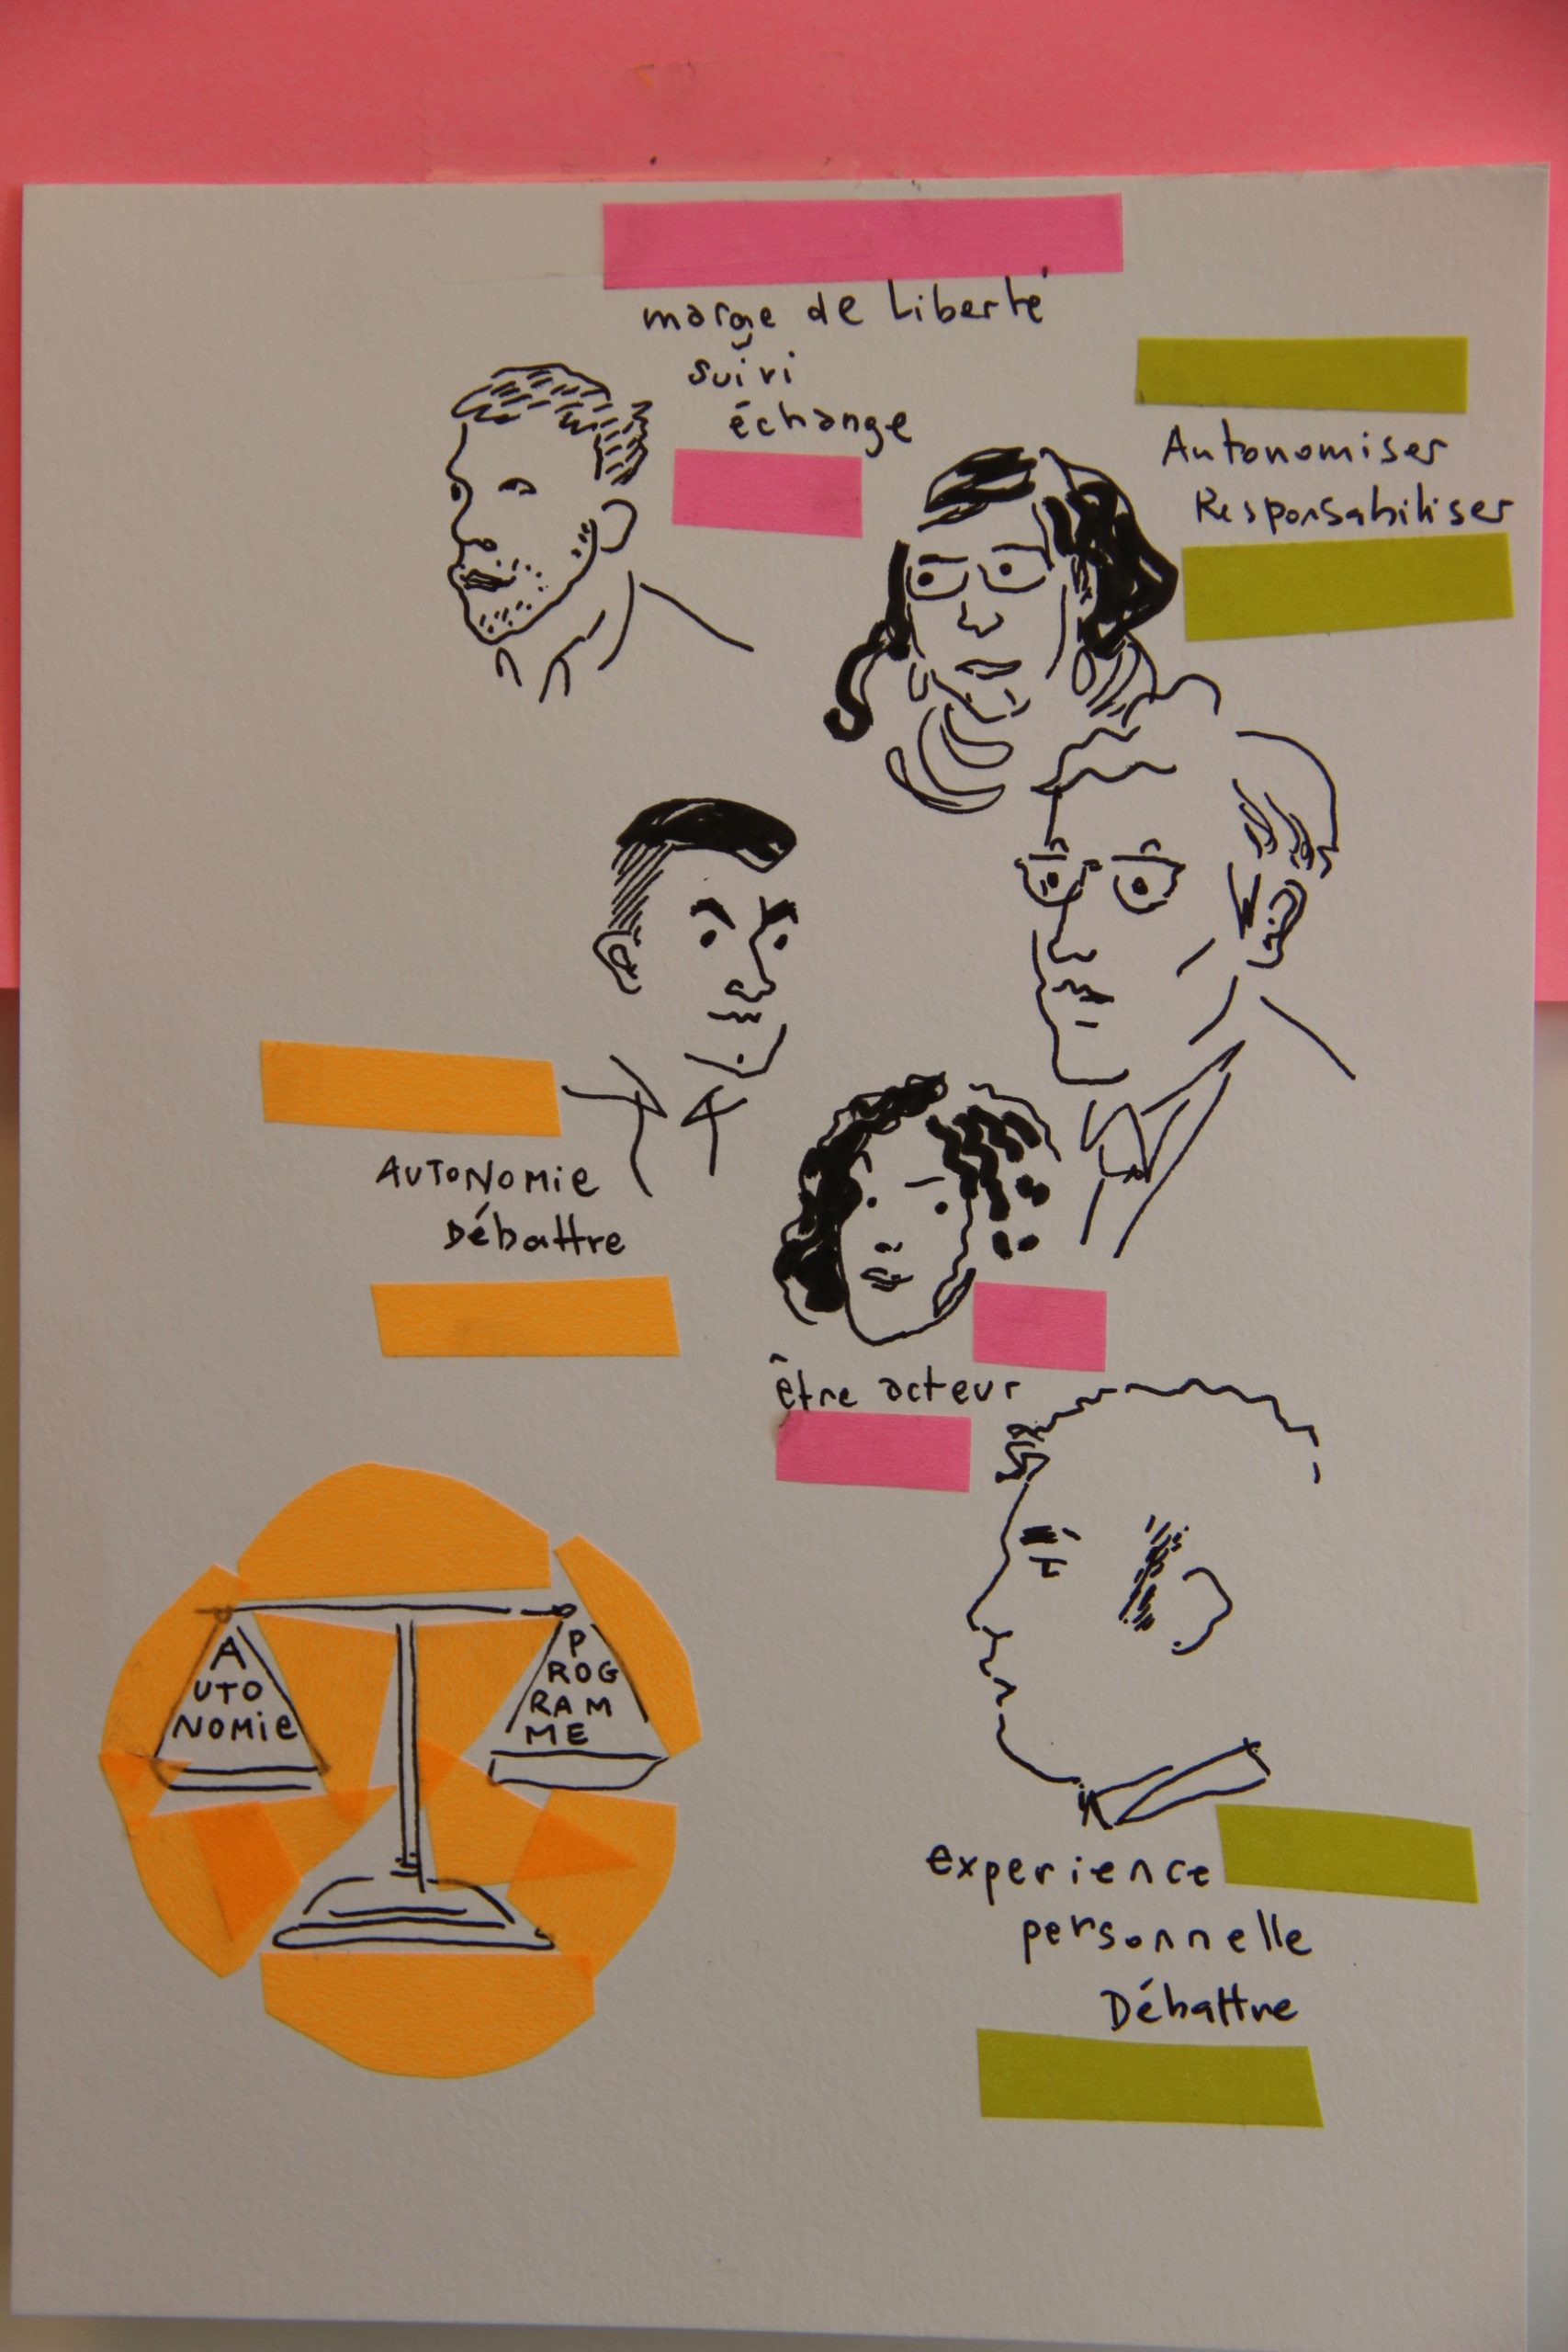 marge de liberté
suivi
échange
Autonomiser
Responsabiliser
AUTONOMie
Débattre
être acteur
A
UTO
NOMie
P
ROG
RAM
ME
experience
personnelle
Débattre